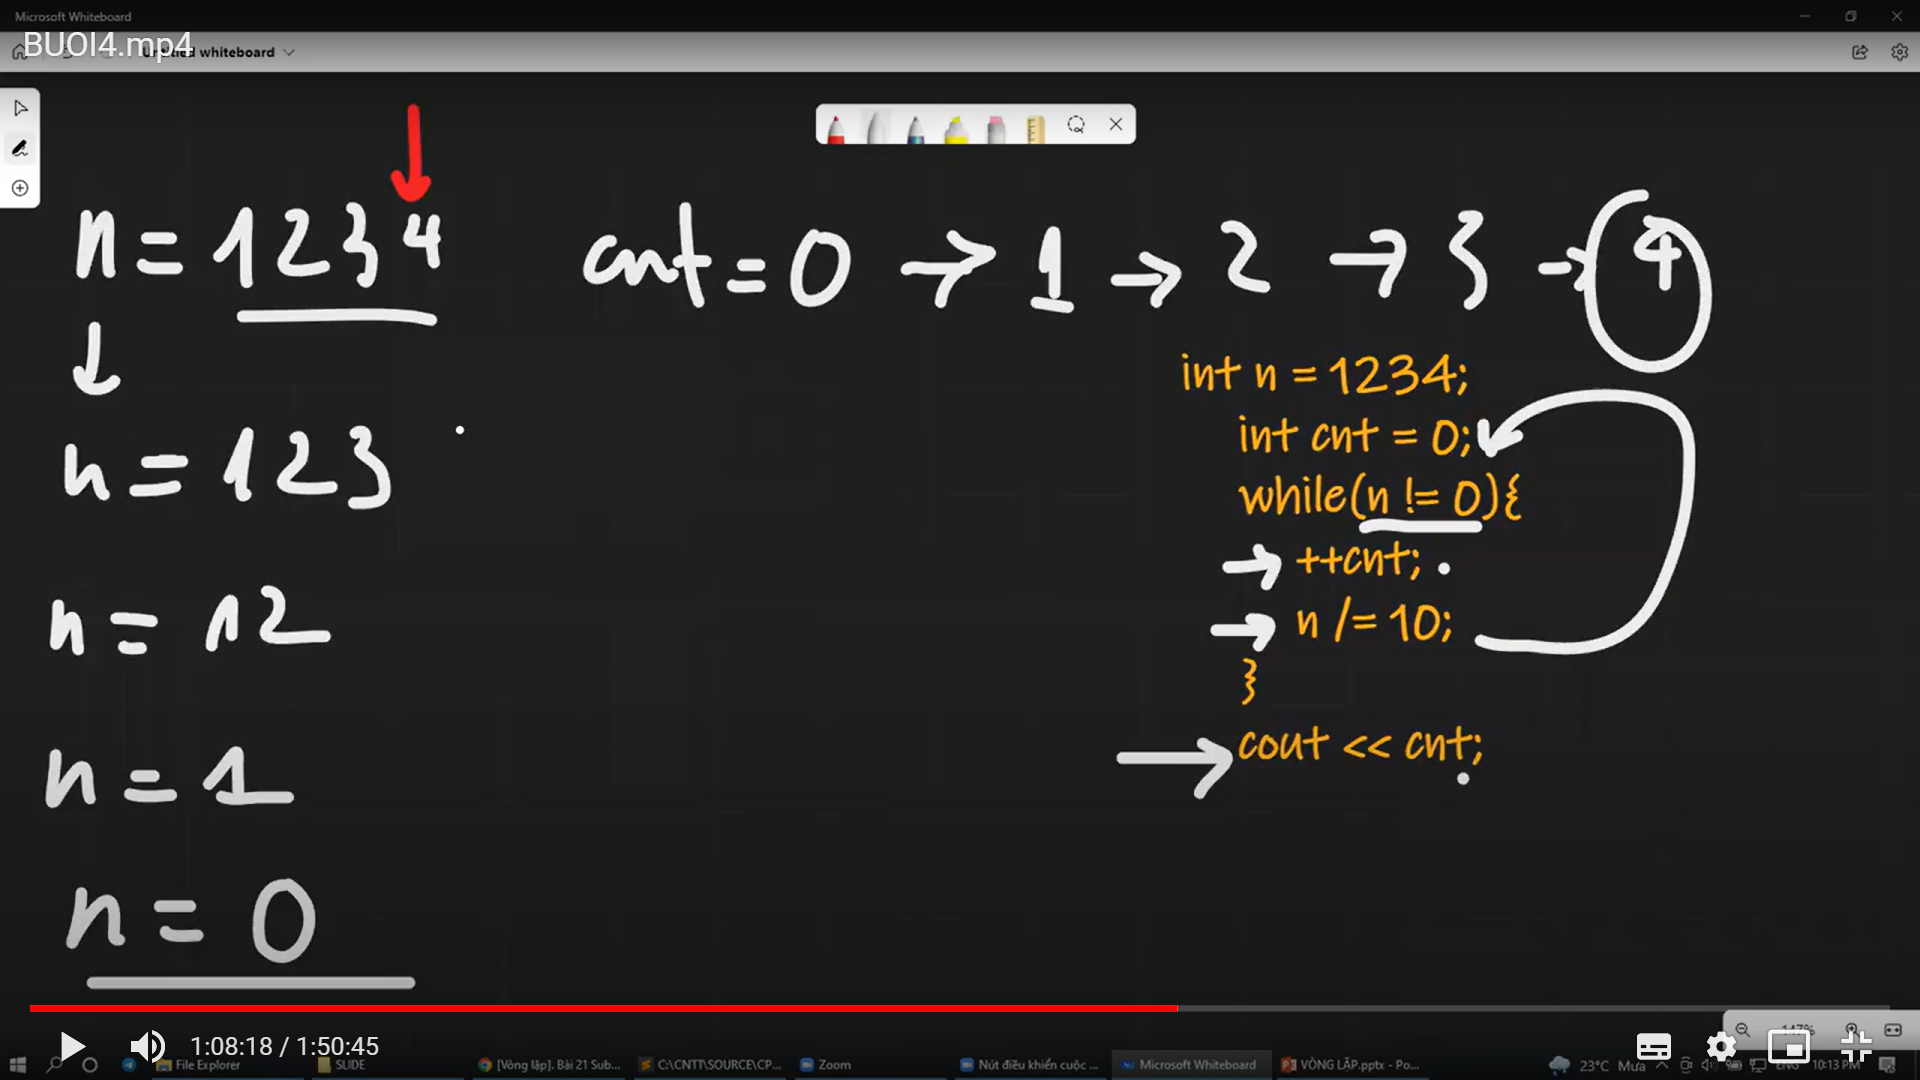 Microsoft Whiteboard
BUOI4.mp4
whiteboard
n = 1234
cnt = 0 → 1 → 2 → 3 → 4
int n = 1234;
int cnt = 0;
while(n != 0){
++cnt;
n /= 10;
}
cout << cnt;
n = 123
n = 12
n = 1
n = 0
1:08:18 / 1:50:45
File Explorer
SLIDE
[Vòng lặp]. Bài 21 Sub...
C:\CNTT\SOURCE\CP...
Zoom
Nút điều khiển cuộc ...
Microsoft Whiteboard
VÒNG LẶP.pptx - Po...
23°C Mưa
ENG
10:13 PM